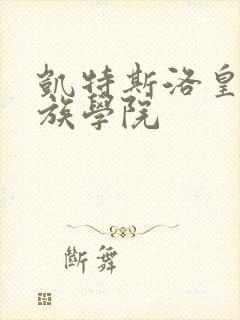 凱特斯洛皇
族學院
斷舞